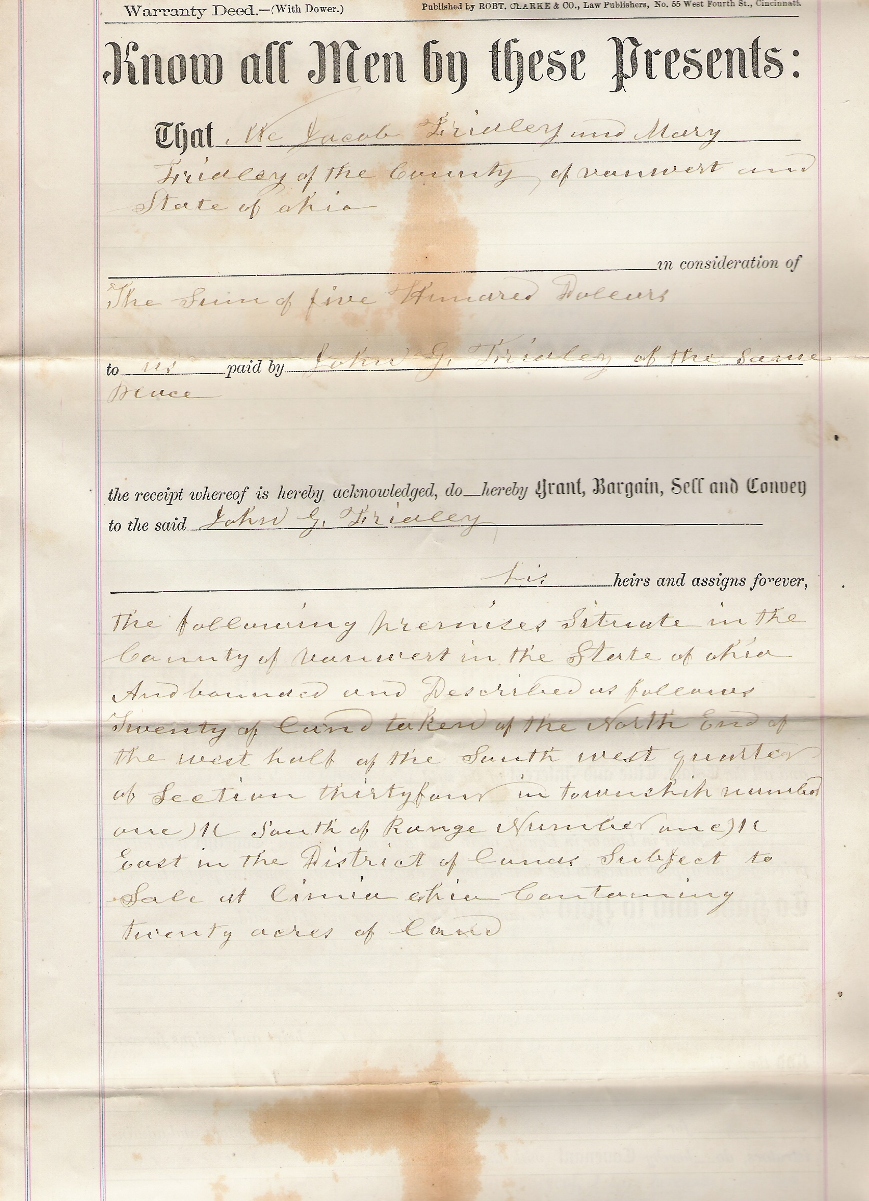 Warranty Deed.—(With Dower.) Published by ROBT. CLARKE & CO., Law Publishers, No. 55 West Fourth St., Cincinnati.
Know all Men by these Presents:
That We Jacob Fridley and Mary
Fridley of the County of vanwert and
State of ohio
in consideration of
The Sum of five Hundred Dollars
to us paid by John G. Fridley of the same
Place
the receipt whereof is hereby acknowledged, do hereby Grant, Bargain, Sell and Convey
to the said John G. Fridley
his heirs and assigns forever,
The following premises Situate in the
County of vanwert in the State of ohio
And bounded and Described as follows
Twenty of land taken of the North End of
the west half of the South west quarter
of Section thirtyfour in township number
one South of Range Number one
East in the District of lands Subject to
Sale at Lima ohio Containing
twenty acres of land